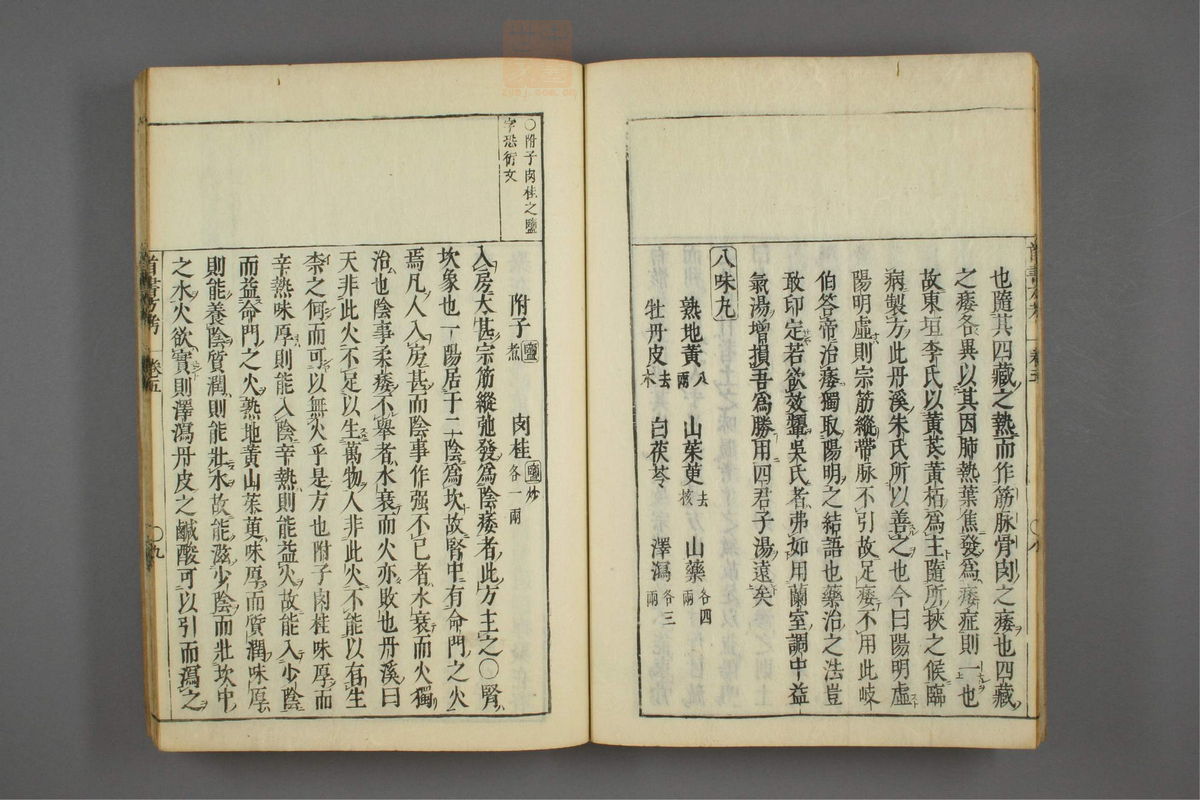 也隨其四藏之熱而作筋脉骨肉之痿也四藏
之痿各異以其因肺熱葉焦發爲痿症則一也
故東垣李氏以黃芪黃栢爲主隨所挾之候臨
病製方此丹溪朱氏所以善之也今曰陽明虛
陽明虛則宗筋縱帶脉不引故足痿不用此岐
伯答帝治痿獨取陽明之結語也藥治之法豈
敢印定若欲效顰吳氏者弗如用蘭室調中益
氣湯增損吾爲勝用四君子湯遠矣
八味丸
熟地黃八兩 山茱萸去核 山藥各四兩
牡丹皮去木 白茯苓 澤瀉各三兩
〇附子肉桂之鹽
字恐衍文
附子鹽煮 肉桂鹽炒各一兩
入房太甚宗筋縱弛發爲陰痿者此方主之〇腎
坎象也一陽居于二陰爲坎故腎中有命門之火
焉凡人入房甚而陰事作强不已者水衰而火獨
治也陰事柔痿不舉者水衰而火亦敗也丹溪曰
天非此火不足以生萬物人非此火不能以有生
柰之何而可以無火乎是方也附子肉桂味厚而
辛熱味厚則能入陰辛熱則能益火故能入少陰
而益命門之火熟地黃山茱萸味厚而質潤味厚
則能養陰質潤則能壯水故能滋少陰而壯坎中
之水火欲實則澤瀉丹皮之鹹酸可以引而瀉之
卷五
〇九
〇八